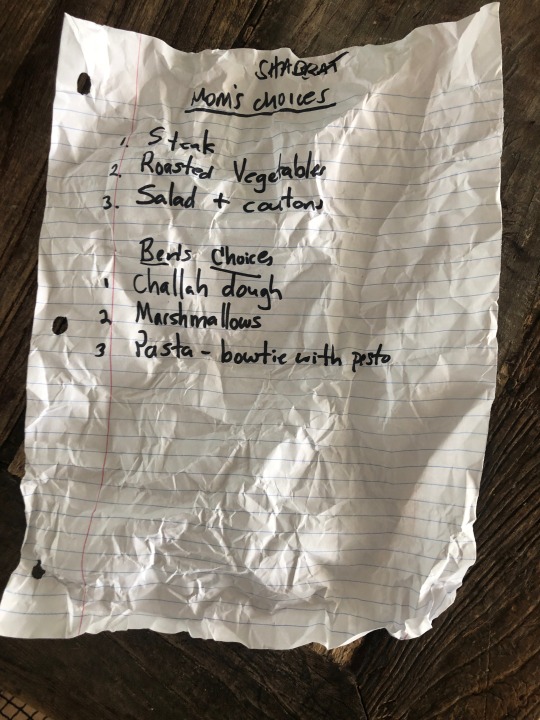 SHABBAT
Mom's choices
1. Steak
2. Roasted Vegetables
3. Salad + coutons
Ben's Choices
1 Challah dough
2 Marshmallows
3 Pasta - bowtie with pesto